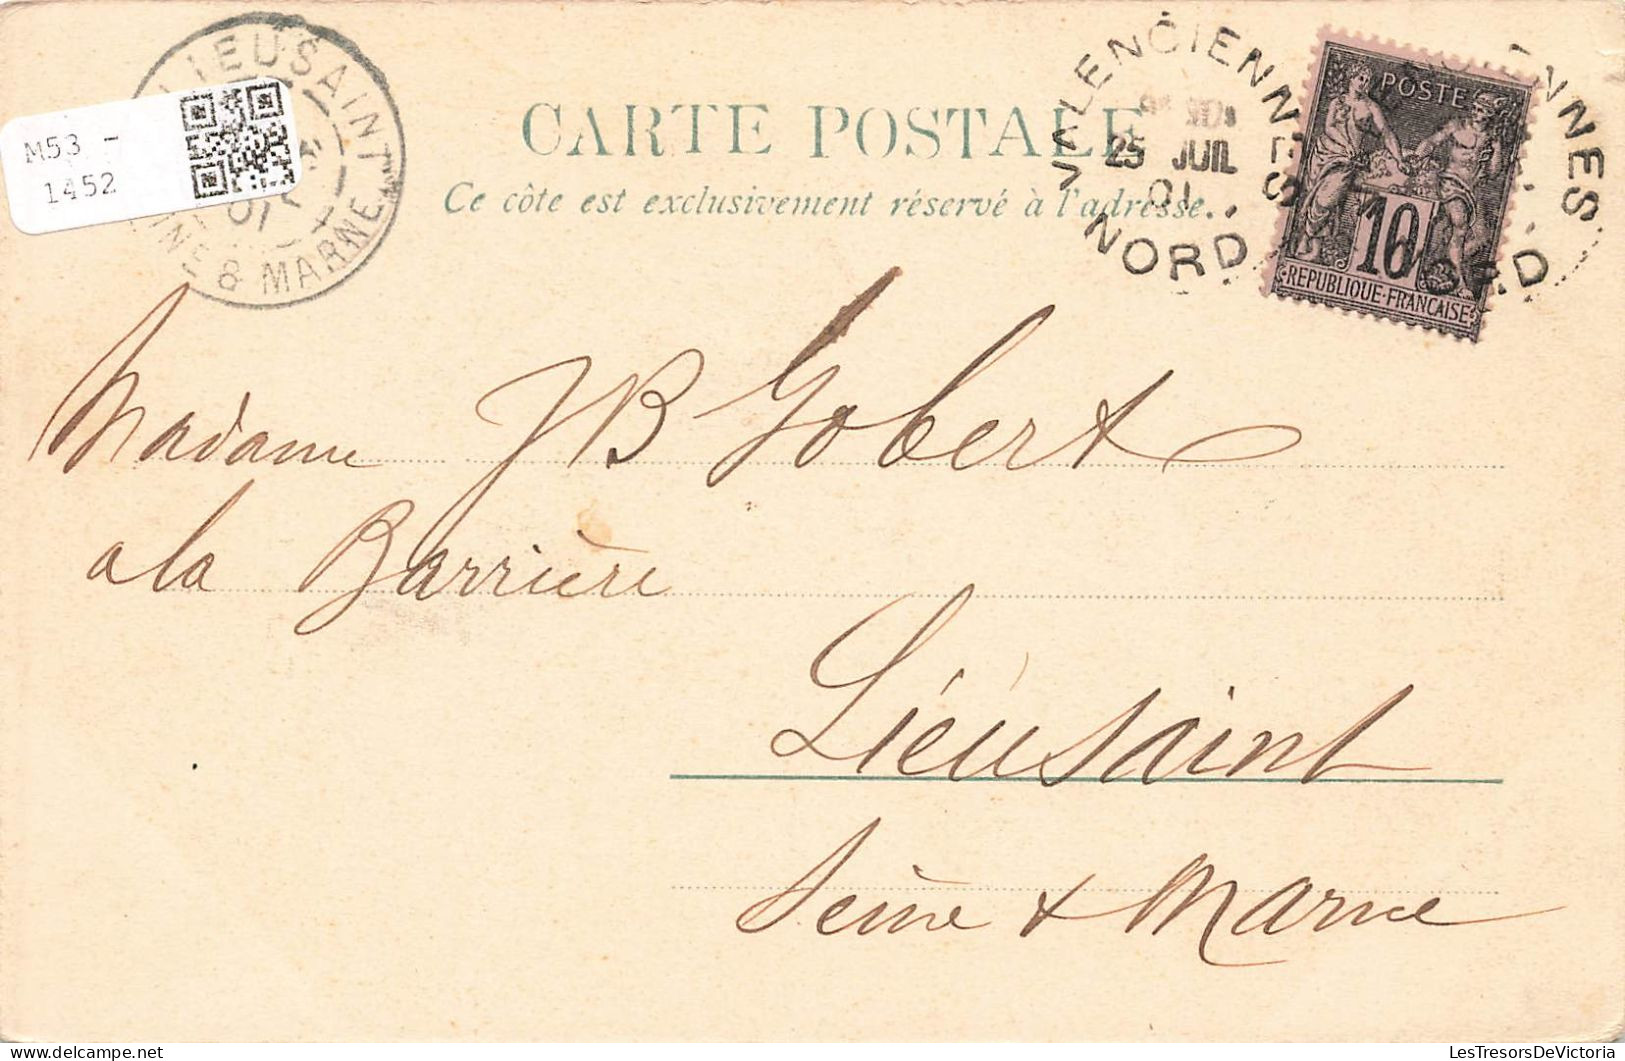 LIEUSAINT
SEINE & MARNE
01
M53 -
1452
CARTE POSTALE
Ce côte est exclusivement réservé à l'adresse.
VALENCIENNES
25 JUIL
01
NORD
POSTE
10
REPUBLIQUE FRANCAISE
Madame JB Gobert
a la Barrière
Liéusaint
Seine & Marne
LesTresorsDeVictoria